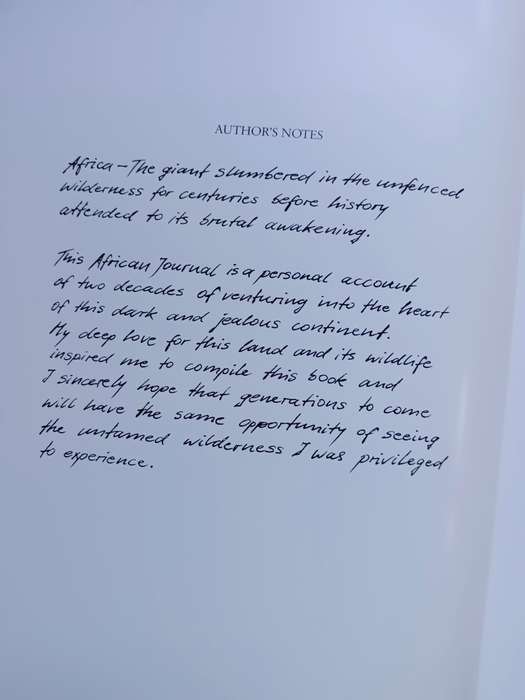 AUTHOR'S NOTES
Africa – The giant slumbered in the unfenced
wilderness for centuries before history
attended to its brutal awakening.
This African Journal is a personal account
of two decades of venturing into the heart
of this dark and jealous continent.
My deep love for this land and its wildlife
inspired me to compile this book and
I sincerely hope that generations to come
will have the same opportunity of seeing
the untamed wilderness I was privileged
to experience.